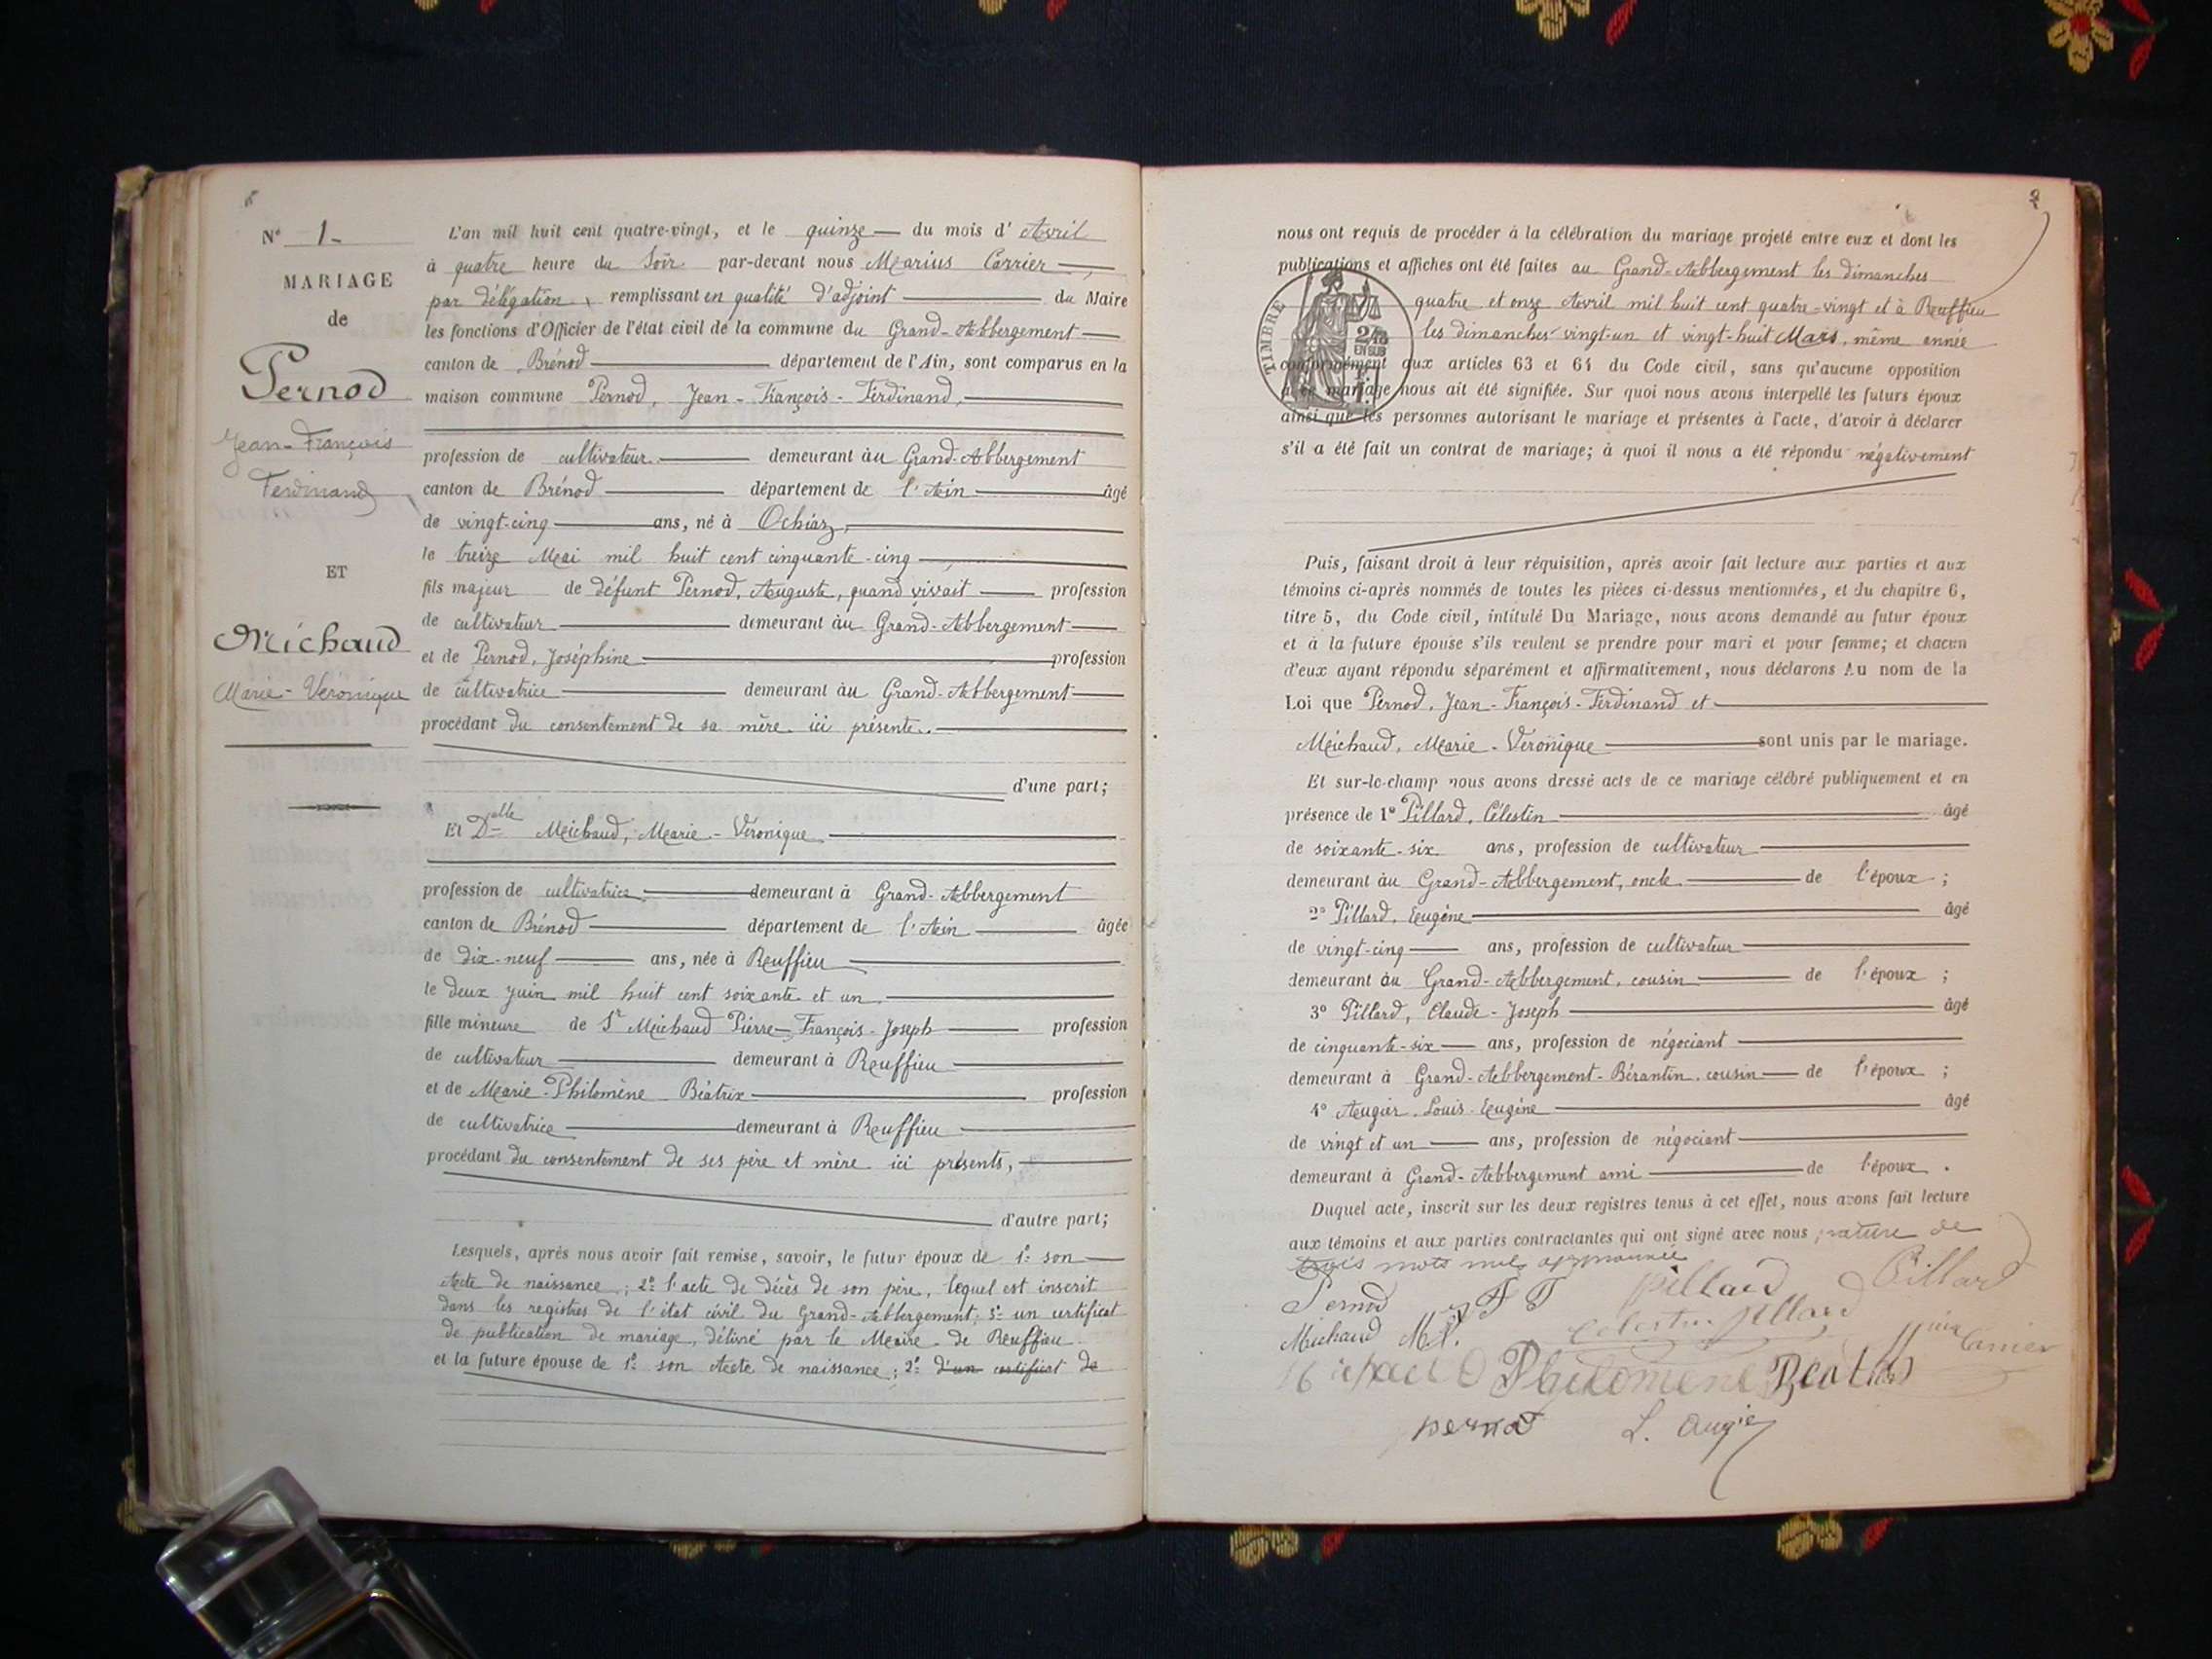 N° 1
MARIAGE
de
Pernod
Jean-François
Ferdinand
ET
Michaud
Marie-Véronique
L'an mil huit cent quatre-vingt, et le quinze du mois d'Avril
à quatre heure du Soir par-devant nous Marius Carrier,
par délégation remplissant en qualité d'adjoint du Maire
les fonctions d'Officier de l'état civil de la commune du Grand-Abbergement
canton de Brénod département de l'Ain, sont comparus en la
maison commune Pernod, Jean-François-Ferdinand,
profession de cultivateur demeurant au Grand-Abbergement
canton de Brénod département de l'Ain âgé
de vingt-cinq ans, né à Ochiaz,
le treize Mai mil huit cent cinquante-cinq
fils majeur de défunt Pernod, Auguste, quand vivait profession
de cultivateur demeurant au Grand-Abbergement
et de Pernod, Joséphine profession
de cultivatrice demeurant au Grand-Abbergement
procédant du consentement de sa mère ici présente.
d'une part;
Et Delle Michaud, Marie-Véronique
profession de cultivatrice demeurant à Grand-Abbergement
canton de Brénod département de l'Ain âgée
de dix-neuf ans, née à Ruffieu
le deux Juin mil huit cent soixante et un
fille mineure de Sr Michaud Pierre-François-Joseph profession
de cultivateur demeurant à Ruffieu
et de Marie-Philomène Béatrix profession
de cultivatrice demeurant à Ruffieu
procédant du consentement de ses père et mère ici présents,
d'autre part;
Lesquels, après nous avoir fait remise, savoir, le futur époux de 1° son
Acte de naissance; 2° l'acte de décès de son père, lequel est inscrit
dans les registres de l'état civil du Grand-Abbergement; 3° un certificat
de publication de mariage, délivré par le Maire de Ruffieu
et la future épouse de 1° son Acte de naissance; 2° d'un certificat de
2
nous ont requis de procéder à la célébration du mariage projeté entre eux et dont les
publications et affiches ont été faites au Grand-Abbergement les dimanches
quatre et onze Avril mil huit cent quatre-vingt et à Ruffieu
les dimanches vingt-un et vingt-huit Mars, même année
conformément aux articles 63 et 64 du Code civil, sans qu'aucune opposition
à ce mariage nous ait été signifiée. Sur quoi nous avons interpellé les futurs époux
ainsi que les personnes autorisant le mariage et présentes à l'acte, d'avoir à déclarer
s'il a été fait un contrat de mariage; à quoi il nous a été répondu négativement
TIMBRE
2/10
EN SUS
Puis, faisant droit à leur réquisition, après avoir fait lecture aux parties et aux
témoins ci-après nommés de toutes les pièces ci-dessus mentionnées, et du chapitre 6,
titre 5, du Code civil, intitulé Du Mariage, nous avons demandé au futur époux
et à la future épouse s'ils veulent se prendre pour mari et pour femme; et chacun
d'eux ayant répondu séparément et affirmativement, nous déclarons Au nom de la
Loi que Pernod, Jean-François-Ferdinand et
Michaud, Marie-Véronique sont unis par le mariage.
Et sur-le-champ nous avons dressé acte de ce mariage célébré publiquement et en
présence de 1° Pillard, Célestin âgé
de soixante-six ans, profession de cultivateur
demeurant au Grand-Abbergement, oncle de l'époux;
2° Pillard, Eugène âgé
de vingt-cinq ans, profession de cultivateur
demeurant au Grand-Abbergement, cousin de l'époux;
3° Pillard, Claude-Joseph âgé
de cinquante-six ans, profession de négociant
demeurant à Grand-Abbergement-Bérantin, cousin de l'époux;
4° Augier, Louis-Eugène âgé
de vingt et un ans, profession de négociant
demeurant à Grand-Abbergement ami de l'époux.
Duquel acte, inscrit sur les deux registres tenus à cet effet, nous avons fait lecture
aux témoins et aux parties contractantes qui ont signé avec nous; rature de
trois mots nuls approuvée
Pernod J F F pillard Pillard
Michaud M.V. Celestin pillard Carrier
Philomene Beatrix
pernod L. Augier